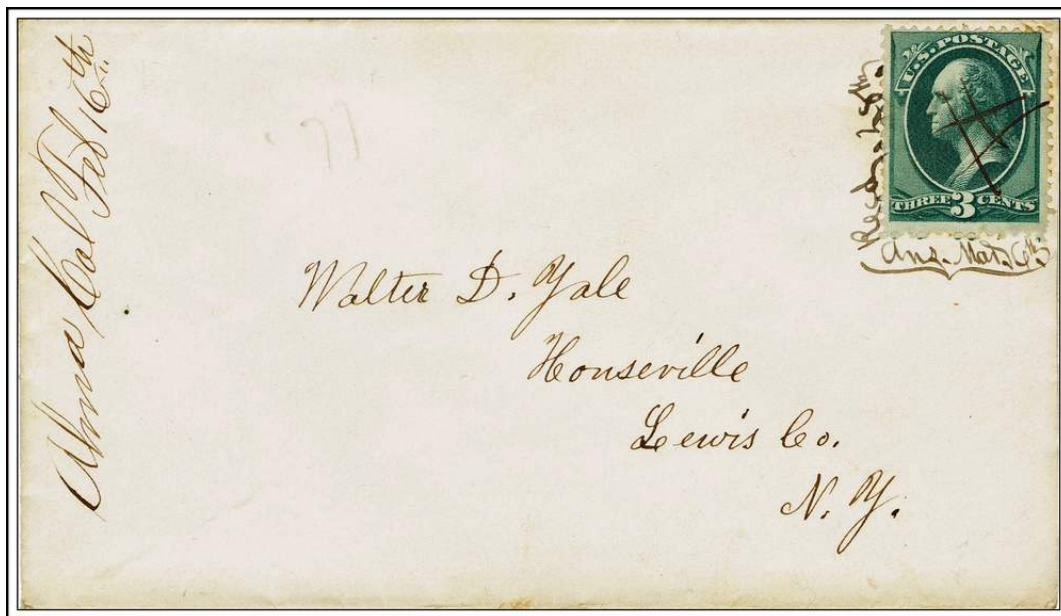 Alma Col Feb 16th
'77
U.S. POSTAGE
THREE 3 CENTS
Ans. Mar. 6th
Walter D. Yale
Houseville
Lewis Co.
N. Y.